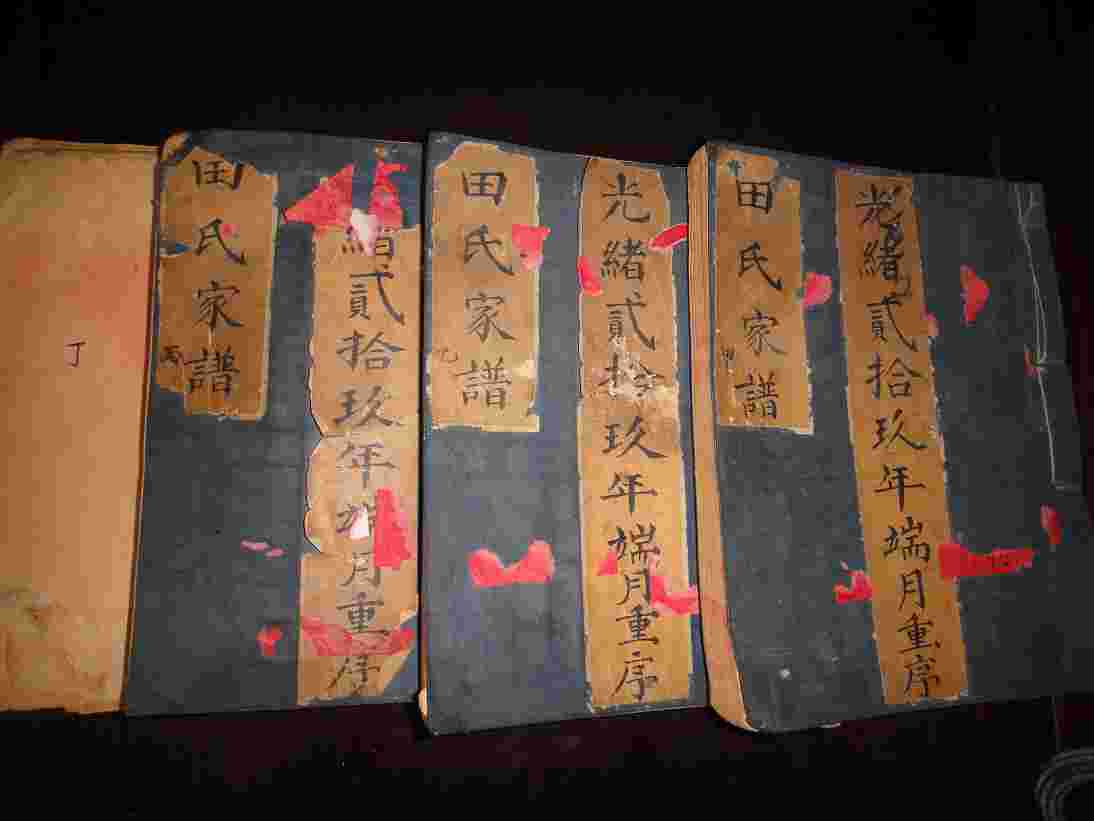 光緒貳拾玖年端月重序
田氏家譜
甲
光緒貳拾玖年端月重序
田氏家譜
乙
緒貳拾玖年端月重序
田氏家譜
丙
丁